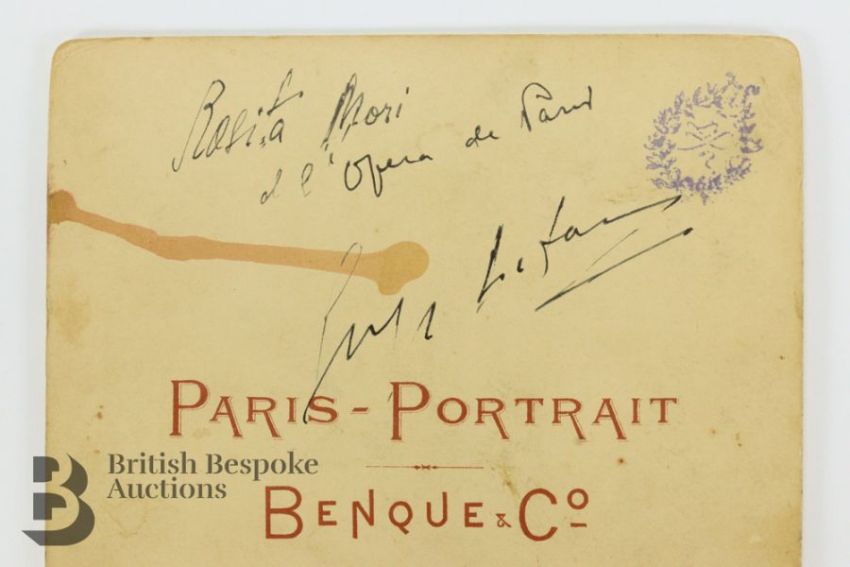 Rosita Mori
d l'Opera de Paris
Serge Lifar
PARIS-PORTRAIT
British Bespoke
Auctions
BENQUE & Cº